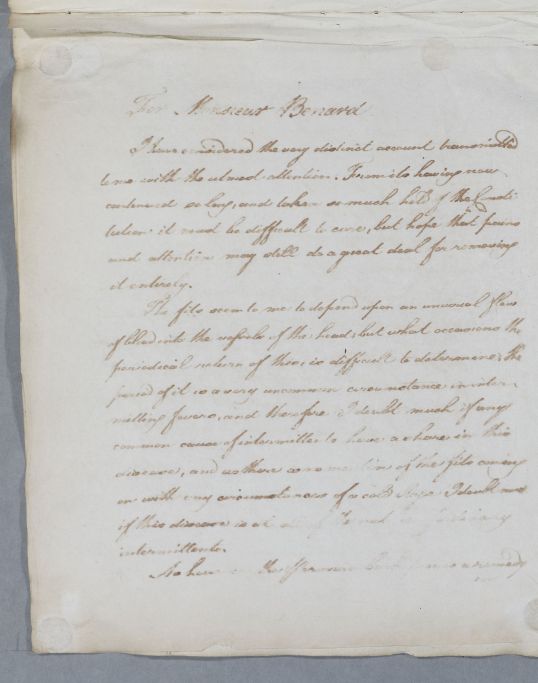 For Monsieur Benard
I have considered the very distinct account transmitted
to me with the utmost attention. From its having now
continued so long, and taken so much hold of the Consti
tution it must be difficult to cure, but hope that pains
and attention may still do a great deal for removing
it entirely.
The fits seem to me to depend upon an unusual flow
of blood into the vessels of the head, but what occasions the
periodical return of this, is difficult to determine, the
period of it is a very uncommon circumstance in inter
mitting fevers, and therefore I doubt much if any
common cause of intermittents have a share in this
disease, and as there is no mention of the fits coming
on with any circumstances of a cold I doubt
if this disease is at
intermittents.
As have remedy